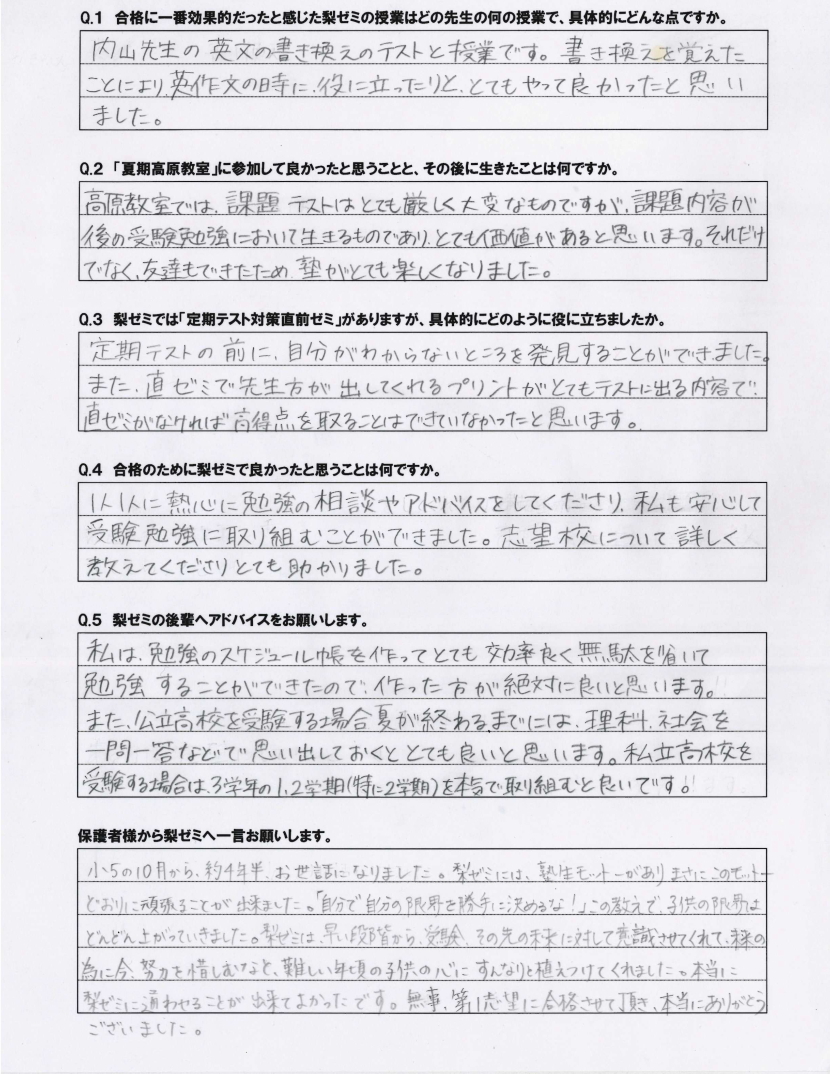 Q.1 合格に一番効果的だったと感じた梨ゼミの授業はどの先生の何の授業で、具体的にどんな点ですか。
内山先生の英文の書き換えのテストと授業です。書き換えを覚えた
ことにより、英作文の時に、役に立ったりと、とてもやって良かったと思い
ました。
Q.2 「夏期高原教室」に参加して良かったと思うことと、その後に生きたことは何ですか。
高原教室では、課題テストはとても厳しく大変なものですが、課題内容が
後の受験勉強において生きるものであり、とても価値があると思います。それだけ
でなく、友達もできたため、塾がとても楽しくなりました。
Q.3 梨ゼミでは「定期テスト対策直前ゼミ」がありますが、具体的にどのように役に立ちましたか。
定期テストの前に、自分がわからないところを発見することができました。
また、直ゼミで先生方が出してくれるプリントがとてもテストに出る内容で、
直ゼミがなければ高得点を取ることはできていなかったと思います。
Q.4 合格のために梨ゼミで良かったと思うことは何ですか。
1人1人に熱心に勉強の相談やアドバイスをしてくださり、私も安心して
受験勉強に取り組むことができました。志望校について詳しく
教えてくださりとても助かりました。
Q.5 梨ゼミの後輩へアドバイスをお願いします。
私は、勉強のスケジュール帳を作ってとても効率良く無駄を省いて
勉強することができたので、作った方が絶対に良いと思います。
また、公立高校を受験する場合夏が終わるまでには、理科、社会を
一問一答などで思い出しておくととても良いと思います。私立高校を
受験する場合は、3学年の1、2学期(特に2学期)を本気で取り組むと良いです。
保護者様から梨ゼミへ一言お願いします。
小5の10月から、約4年半、お世話になりました。梨ゼミには、塾生モットーがありまさにこのモットー
どおりに頑張ることが出来ました。「自分で自分の限界を勝手に決めるな！」この教えで、子供の限界は
どんどん上がっていきました。梨ゼミは、早い段階から、受験、その先の未来に対して意識させてくれて、未来の
為に今、努力を惜しむなと、難しい年頃の子供の心にすんなりと植えつけてくれました。本当に
梨ゼミに通わせることが出来てよかったです。無事、第1志望に合格させて頂き、本当にありがとう
ございました。